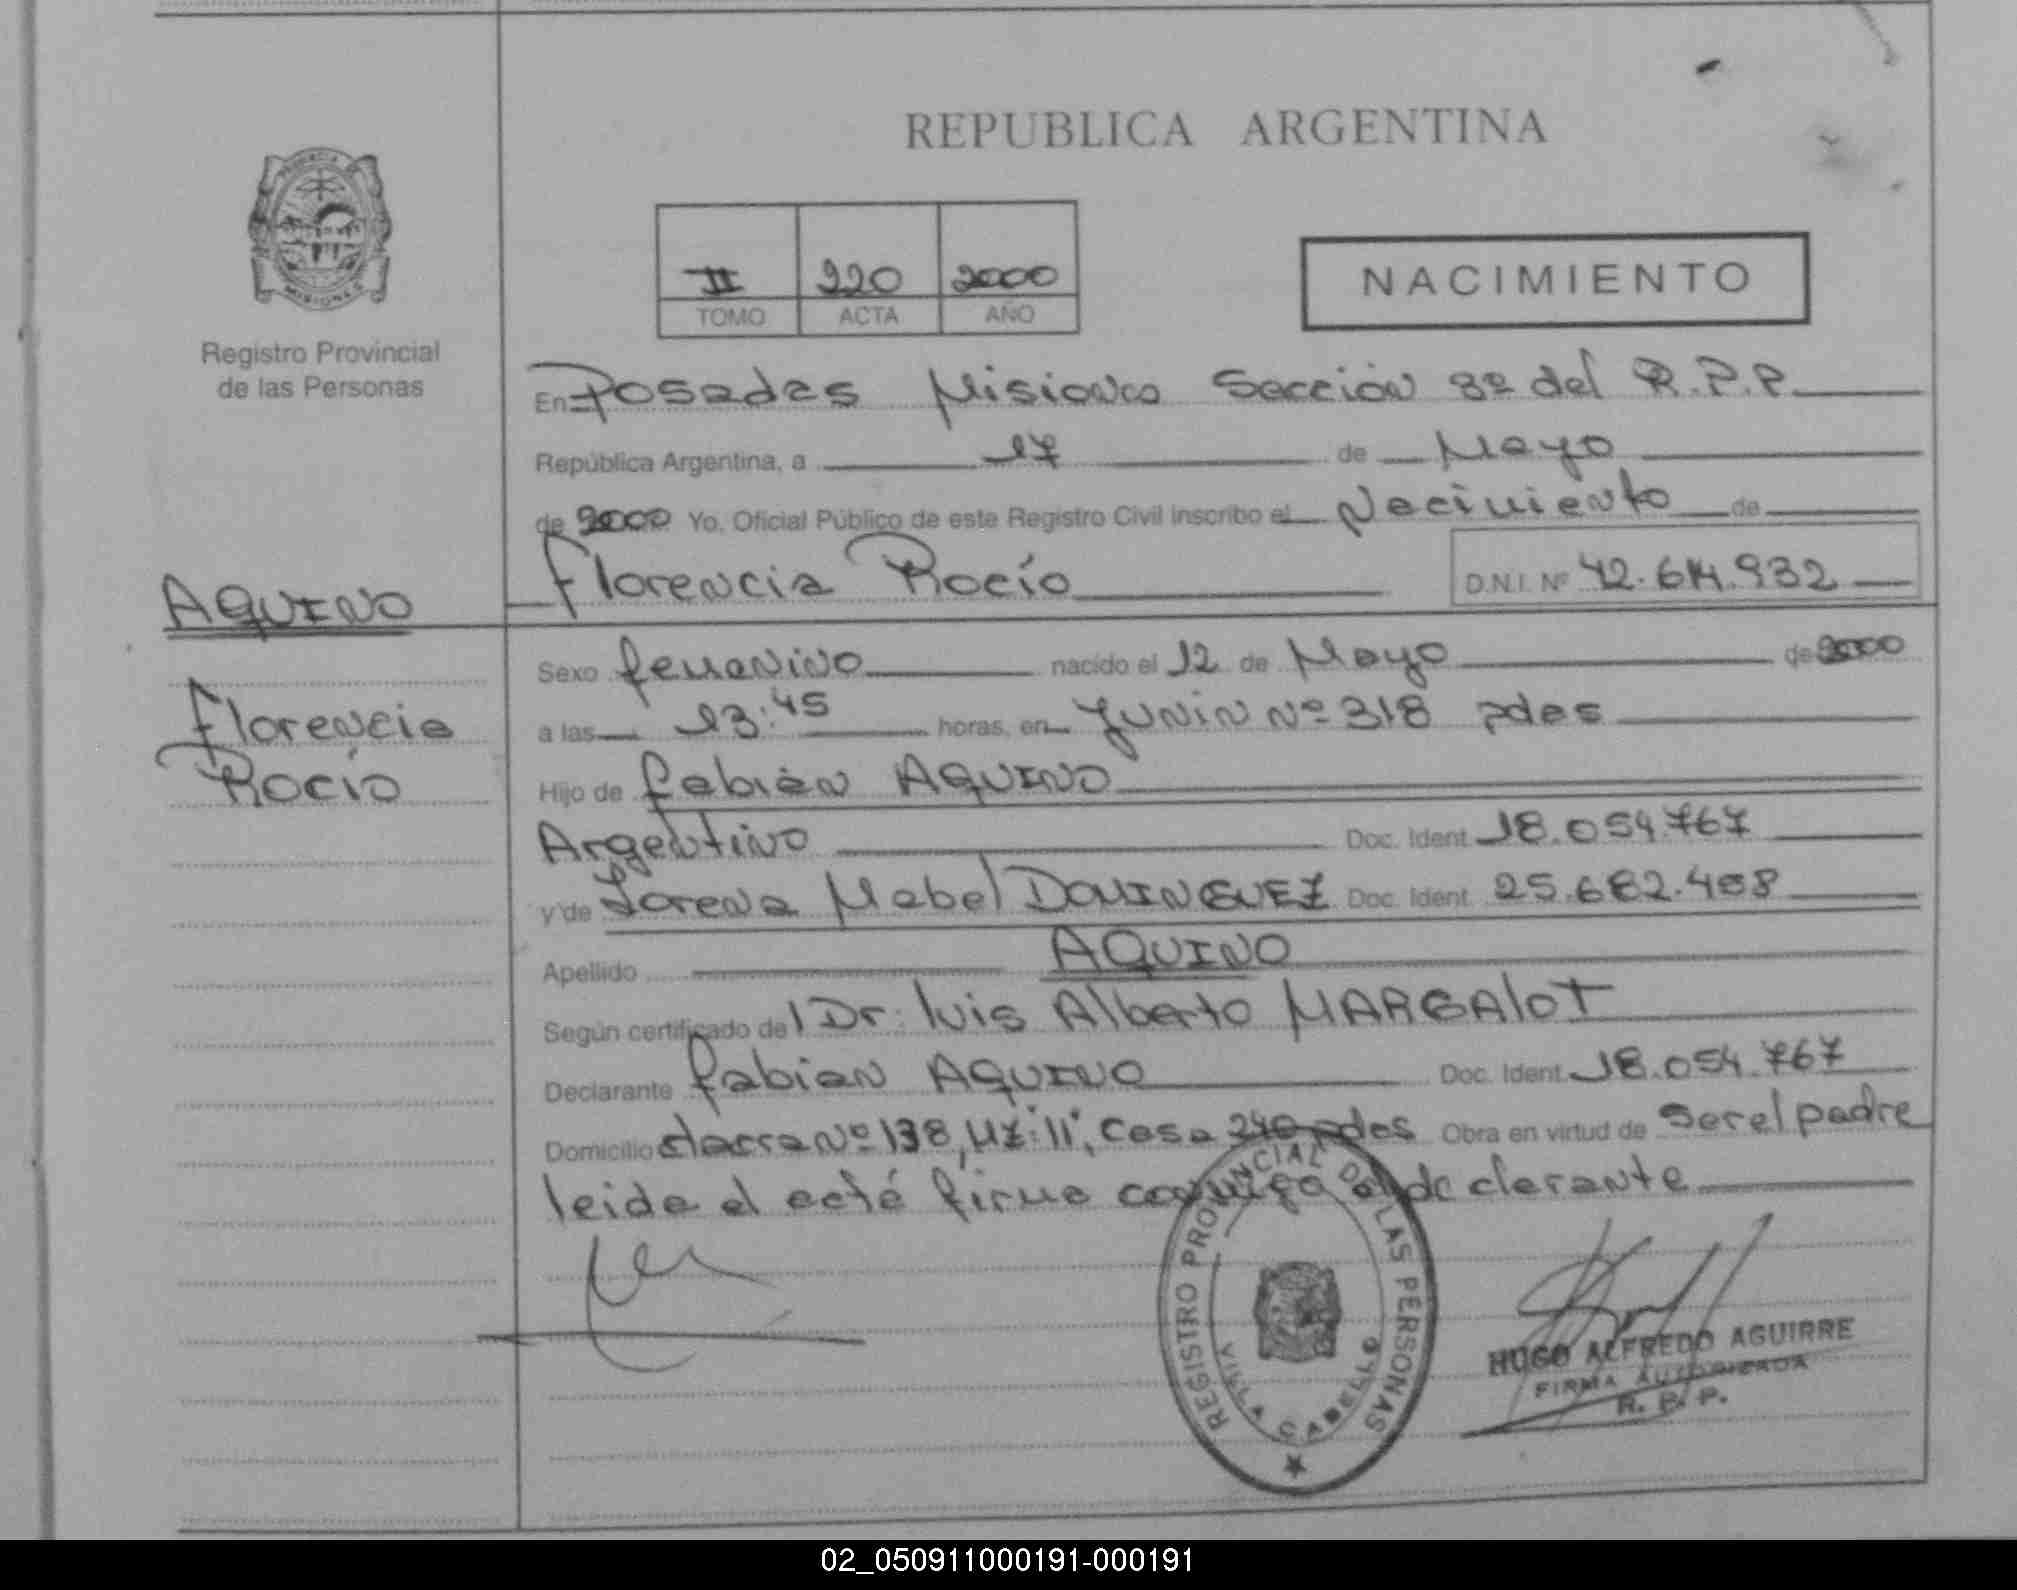 REPUBLICA ARGENTINA
PROVINCIA
MISIONES
Registro Provincial
de las Personas
II 220 2000
TOMO ACTA AÑO
NACIMIENTO
En Posadas Misiones Sección 8º del R.P.P.
República Argentina, a 17 de Mayo
de 2000 Yo, Oficial Público de este Registro Civil inscribo el Nacimiento de
Florencia Rocío D.N.I. Nº 42.614.932
AQUINO
Florencia
Rocío
Sexo femenino nacido el 12 de Mayo de 2000
a las 13:45 horas, en Junin Nº 318 pdas
Hijo de fabián AQUINO
Argentino Doc. Ident. 18.054.767
y de Lorena Mabel DOMINGUEZ Doc. Ident. 25.682.408
Apellido AQUINO
Según certificado del Dr. luis Alberto MARGAlOT
Declarante fabian AQUINO Doc. Ident. 18.054.767
Domicilio chacra Nº 138, Mz: 11, Casa 240 pdas Obra en virtud de ser el padre
leida el acta firma conmigo el declarante
REGISTRO PROVINCIAL DE LAS PERSONAS
VILLA CABELLO
HUGO ALFREDO AGUIRRE
FIRMA AUTORIZADA
R. P. P.
02_050911000191-000191